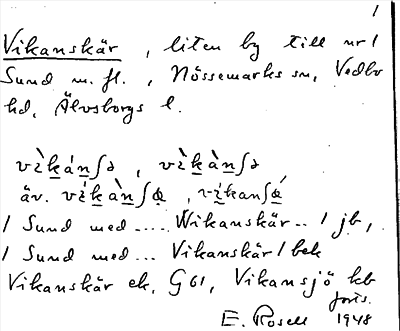 1
Vikanskär, liten by till nr 1
Sund m. fl., Nössemarks sn, Vedbo
hd, Älvsborgs l.
vìkánʃə, vìkànʃə
äv. víkànʃa, víkanʃá
1 Sund med .... Wikanskär .. 1 jb,
1 Sund med ... Vikanskär 1 bek
Vikanskär ek, G 61, Vikansjö kb
E. Rosell 1948